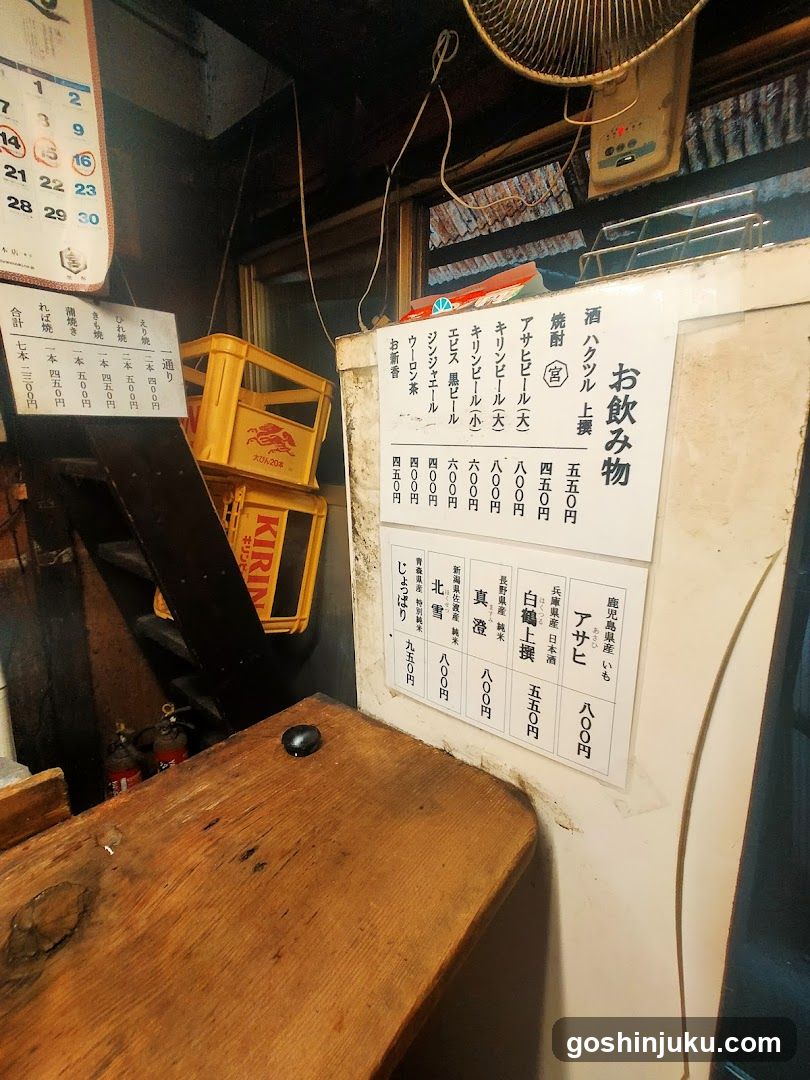 1 2
7 8 9
14 15 16
21 22 23
28 29 30
一通り
えり焼 二本 四〇〇円
ひれ焼 二本 五〇〇円
きも焼 一本 四五〇円
蒲焼き 一本 五〇〇円
れば焼 一本 四五〇円
合計 七本 二三〇〇円
大びん20本
KIRIN
キリンビール
お飲み物
酒 ハクツル 上撰 五五〇円
焼酎 宮 四五〇円
アサヒビール(大) 八〇〇円
キリンビール(大) 八〇〇円
キリンビール(小) 六〇〇円
エビス 黒ビール 六〇〇円
ジンジャエール 四〇〇円
ウーロン茶 四〇〇円
お新香 四五〇円
鹿児島県産 いも
アサヒ あさひ 八〇〇円
兵庫県産 日本酒
白鶴上撰 はくつる 五五〇円
長野県産 純米
真澄 ますみ 八〇〇円
新潟県佐渡産 純米
北雪 ほくせつ 八〇〇円
青森県産 特別純米
じょっぱり 九五〇円
goshinjuku.com